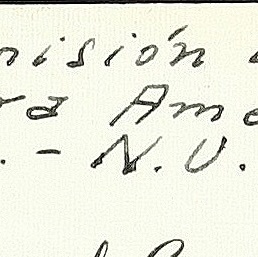 nisión
ra Ame
. - N.U.